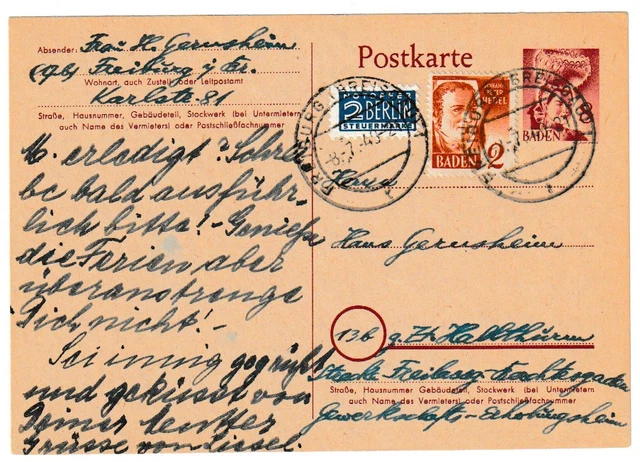 Absender: Frau H. Gernsheim
(17b) Freiburg i. Br.
Wohnort, auch Zustell- oder Leitpostamt
Karlstr. 81
Straße, Hausnummer, Gebäudeteil, Stockwerk (bei Untermietern
auch Name des Vermieters) oder Postschließfachnummer
M. erledigt? Schrei
be bald ausführ-
lich bitte! - Genieße
die Ferien aber
überanstrenge
Dich nicht! -
Sei innig gegrüßt
und geküsst von
Deiner Mutter
Grüsse von Liesel.
Postkarte
NOTOPFER
2 BERLIN
STEUERMARKE
JOHANN
PETER
HEBEL
BADEN 2
BADEN
FREIBURG (BREISGAU)
Herrn
Hans Gernsheim
13b z. Zt.
Freiburg
Straße, Hausnummer, Gebäudeteil, Stockwerk (bei Untermietern
auch Name des Vermieters) oder Postschließfachnummer
Gewerkschafts-Erholungsheim